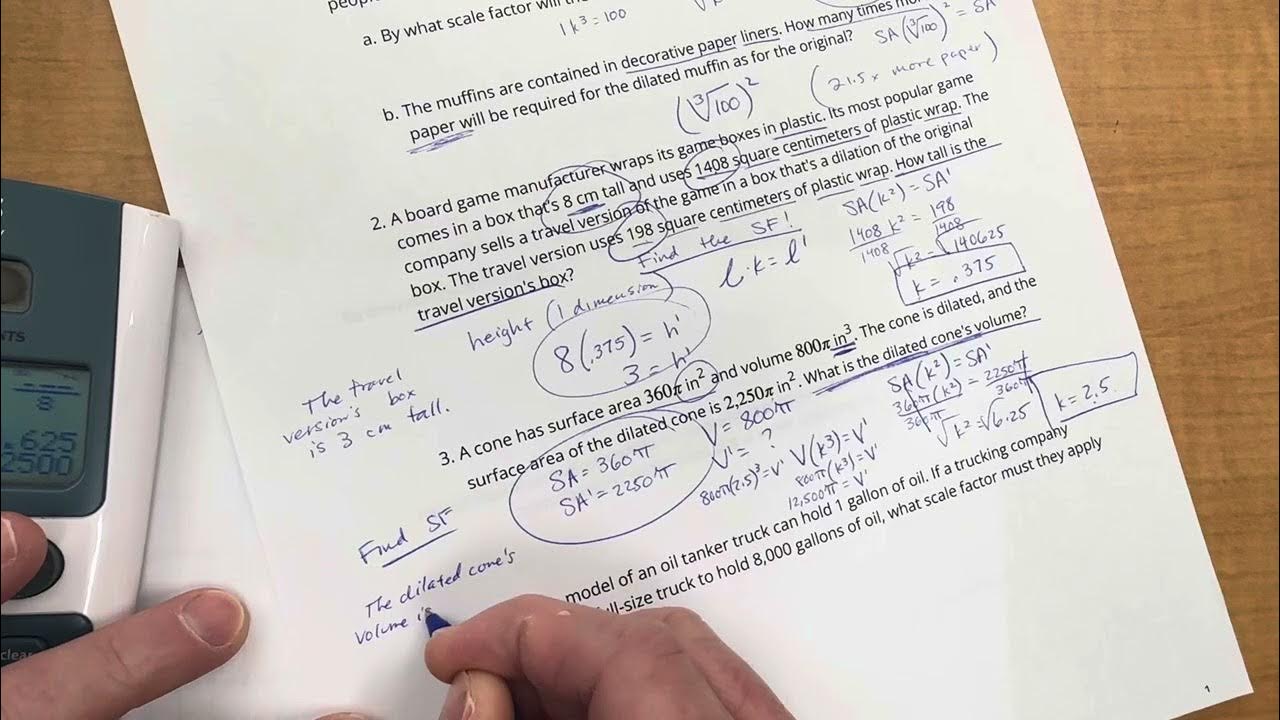 a. By what scale factor will the
1k³ = 100
b. The muffins are contained in decorative paper liners. How many times more
paper will be required for the dilated muffin as for the original?
SA(∛100)² = SA
(∛100)²
(21.5 x more paper)
2. A board game manufacturer wraps its game boxes in plastic. Its most popular game
comes in a box that's 8 cm tall and uses 1408 square centimeters of plastic wrap. The
company sells a travel version of the game in a box that's a dilation of the original
box. The travel version uses 198 square centimeters of plastic wrap. How tall is the
travel version's box?
Find the SF!
l·k = l'
height (1 dimension)
8(.375) = h'
3 = h'
SA(k²) = SA'
1408 k² = 198
1408 1408
√k² = √.140625
k = .375
The travel
version's box
is 3 cm tall.
3. A cone has surface area 360π in² and volume 800π in³. The cone is dilated, and the
surface area of the dilated cone is 2,250π in². What is the dilated cone's volume?
SA = 360π
SA' = 2250π
V = 800π
V' = ?
800π(2.5)³ = V'
V(k³) = V'
800π(k³) = V'
12,500π = V'
SA(k²) = SA'
360π(k²) = 2250π
360π 360π
√k² = √6.25
k = 2.5
Find SF
The dilated cone's
volume is
model of an oil tanker truck can hold 1 gallon of oil. If a trucking company
full-size truck to hold 8,000 gallons of oil, what scale factor must they apply
8
625
2500
clear
1